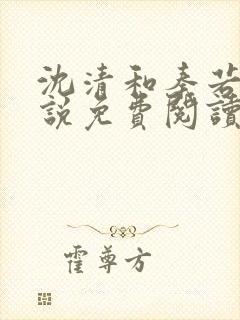 沈清和秦若
說免費閱讀
霍尊方